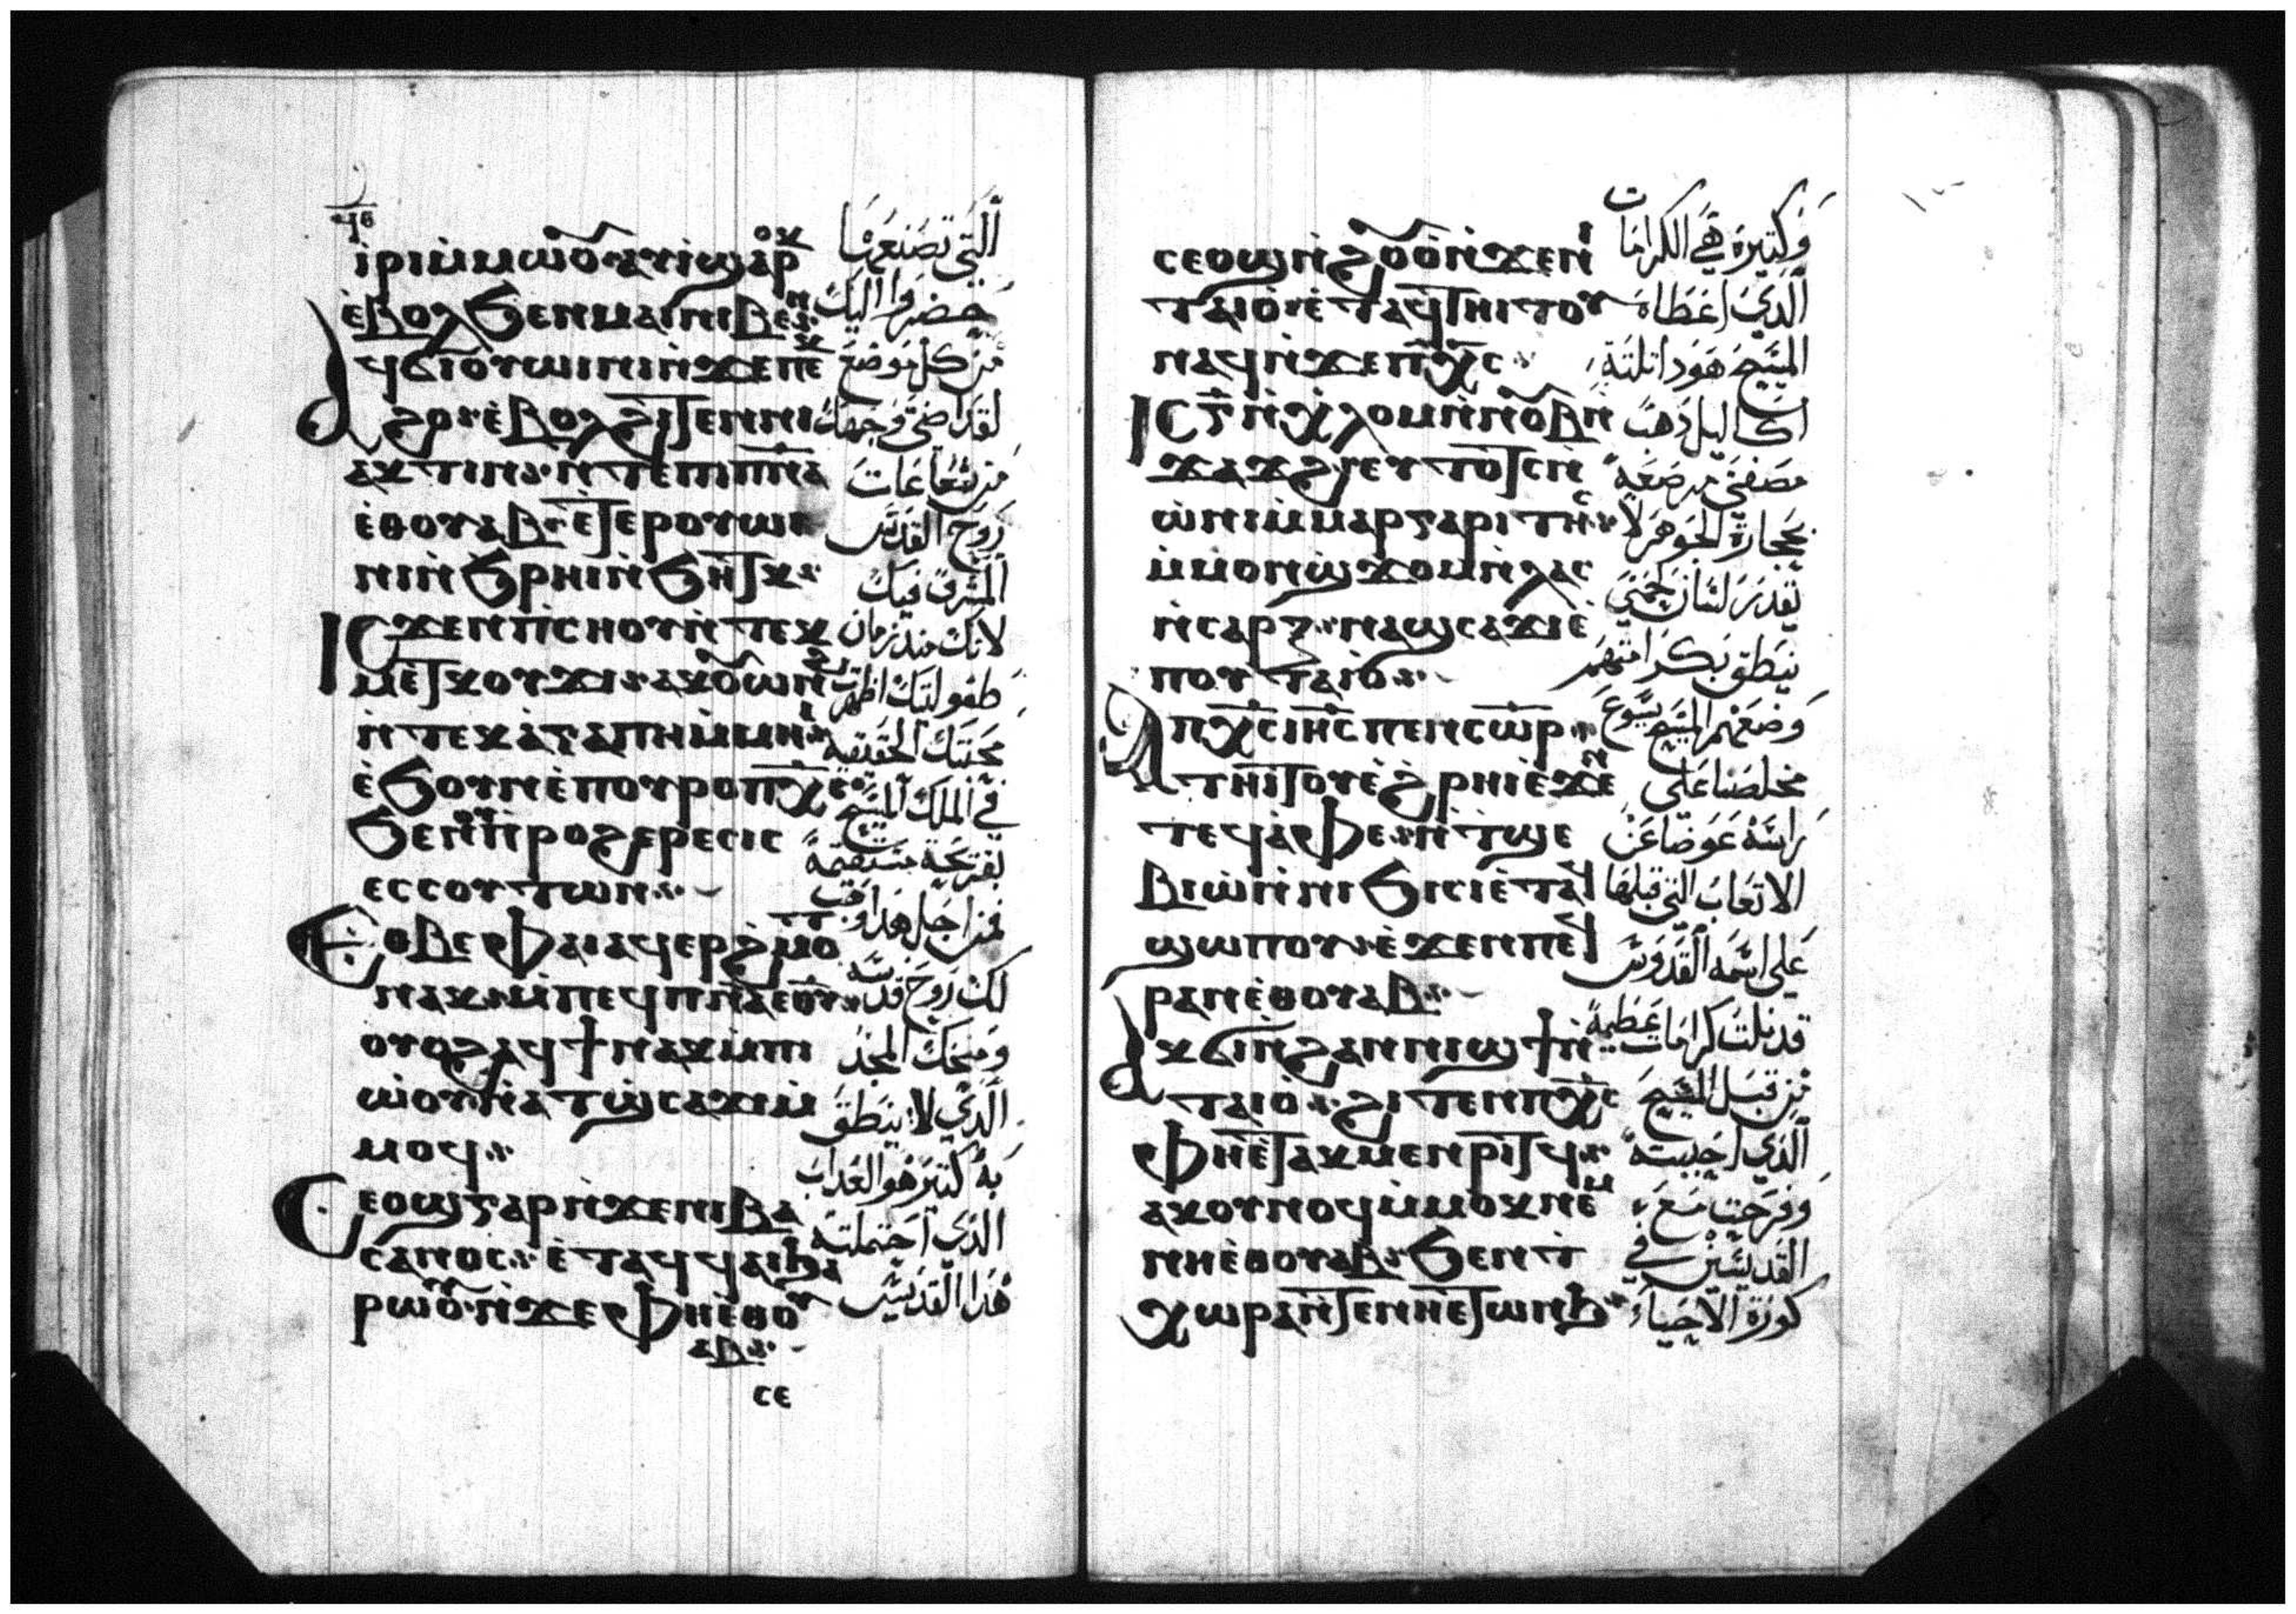 ⲓⲣⲓ ⲙ̀ⲙⲱⲟⲩ ⲁⲩⲓ ϣⲁⲣⲟⲕ
ⲉ̀ⲃⲟⲗ ϧⲉⲛ ⲙⲁⲓ ⲛⲓⲃⲉⲛ
ⲁϥϭⲓⲟⲩⲱⲓⲛⲓ ⲛ̀ϫⲉ ⲡⲉⲕ
ϩⲟ ⲉ̀ⲃⲟⲗ ϩⲓⲧⲉⲛ ⲛⲓ
ⲁⲕⲧⲓⲛ ⲛ̀ⲧⲉ ⲡⲓⲡ̅ⲛ̅ⲁ̅
ⲉ̀ⲑⲟⲩⲁⲃ ⲉ̀ⲧⲉⲣⲟⲩⲱⲓ
ⲛⲓ ⲛ̀ϧⲣⲏⲓ ⲛ̀ϧⲏⲧⲕ
ⲓⲥϫⲉⲛ ⲡⲓⲥⲏⲟⲩ ⲛ̀ⲧⲉⲕ
ⲙⲉⲧⲕⲟⲩϫⲓ ⲁⲕⲟⲩⲱⲛϩ
ⲛ̀ⲧⲉⲕⲁ̀ⲅⲁⲡⲏ ⲙ̀ⲙⲏⲓ
ⲉ̀ϧⲟⲩⲛ ⲉ̀ⲡⲟⲩⲣⲟ ⲡ̅ⲭ̅ⲥ̅
ϧⲉⲛ ⲟⲩⲡⲣⲟϩⲉⲣⲉⲥⲓⲥ
ⲉⲥⲥⲟⲩⲧⲱⲛ
ⲉⲑⲃⲉ ⲫⲁⲓ ⲁϥⲉⲣϩ̀ⲙⲟⲧ
ⲛⲁⲕ ⲙ̀ⲡⲉϥⲡ̅ⲛ̅ⲁ̅ ⲉ̅ⲑ̅ⲩ̅
ⲟⲩⲟϩ ⲁϥϯ ⲛⲁⲕ ⲙ̀ⲡⲓ
ⲱ̀ⲟⲩ ⲛ̀ⲁⲧϣ̀ⲥⲁϫⲓ ⲙ̀
ⲙⲟϥ
ⲥⲉⲟϣ ⲅⲁⲣ ⲛ̀ϫⲉ ⲛⲓⲃⲁ
ⲥⲁⲛⲟⲥ ⲉ̀ⲧⲁϥϥⲁⲓ ϧⲁ
ⲣⲱⲟⲩ ⲛ̀ϫⲉ ⲫⲏⲉⲑⲟⲩ
ⲁⲃ
ⲥⲉ
التي تصنعها
حضروا اليك
من كل موضع
لقد اضى وجهك
من شعاعات
روح القدس
المشرق فيك
لانك منذ زمان
طفوليتك اظهرت
محبتك الحقيقية
في الملك المسيح
مستقيمة
فمن اجل هذا وهب
لك روح قدسه
ومنحك المجد
الذي لا ينطق
به كثير هو العذاب
الذي احتملته
هذا القديس
ⲥⲉⲟϣ ⲛ̀ϩⲟⲩⲟ̀ ⲛ̀ϫⲉ ⲛⲓ
ⲧⲁⲓⲟ ⲉ̀ⲧⲁϥⲧⲏⲓⲧⲟⲩ
ⲛⲁϥ ⲛ̀ϫⲉ ⲡ̅ⲭ̅ⲥ̅
ⲓⲥ ⲅ̅ ⲛ̀ⲭ̀ⲗⲟⲙ ⲛ̀ⲛⲟⲩⲃ ⲛ̀
ϫⲁϫϩ ⲉⲩⲧⲟⲧⲥ ⲛ̀
ⲱ̀ⲛⲓ ⲙ̀ⲙⲁⲣⲅⲁⲣⲓⲧⲏⲥ
ⲙ̀ⲙⲟⲛ ϣϫⲟⲙ ⲛ̀ⲗⲁⲥ
ⲛ̀ⲥⲁⲣⲝ ⲛⲁϣⲥⲁϫⲓ ⲉ̀
ⲡⲟⲩⲧⲁⲓⲟ
ⲁ ⲡ̅ⲭ̅ⲥ̅ ⲓ̅ⲏ̅ⲥ̅ ⲡⲉⲛⲥ̅ⲱ̅ⲣ̅
ⲧⲏⲓⲧⲟⲩ ⲉ̀ϩ̀ⲣⲏⲓ ⲉ̀ϫⲉⲛ
ⲧⲉϥⲁ̀ⲫⲉ ⲛ̀ⲧϣⲉ
ⲃⲓⲱ̀ ⲛ̀ⲛⲓϧⲓⲥⲓ ⲉ̀ⲧⲁϥ
ϣⲱⲡⲟⲩ ⲉ̀ϫⲉⲛ ⲡⲉϥ
ⲣⲁⲛ ⲉ̀ⲑⲟⲩⲁⲃ
ⲁⲕϭⲓ ⲛ̀ϩⲁⲛⲛⲓϣϯ ⲛ̀
ⲧⲁⲓⲟ ϩⲓⲧⲉⲛ ⲡ̅ⲭ̅ⲥ̅
ⲫⲏⲉ̀ⲧⲁⲕⲙⲉⲛⲣⲓⲧϥ
ⲁⲕⲟⲩⲛⲟϥ ⲙ̀ⲙⲟⲕ ⲛⲉⲙ
ⲛⲏⲉ̀ⲑⲟⲩⲁⲃ ϧⲉⲛ ϯ
ⲭⲱⲣⲁ ⲛ̀ⲧⲉ ⲛⲏⲉⲧⲱⲛϧ
وكثيرة هي الكرامات
الذي اعطاه
المسيح هوذا ثلثة
اكاليل ذهب
مصفى مرصعة
بحجارة الجوهر لا
يقدر لسان جسمي
ينطق بكرامتهم
وضعهم المسيح يسوع
مخلصنا على
راسه عوضا عن
الاتعاب التي قبلها
على اسمه القدوس
قد نلت كرامات عظيمة
من قبل المسيح
الذي احببته
وفرحت مع
القديسين في
كورة الاحياء